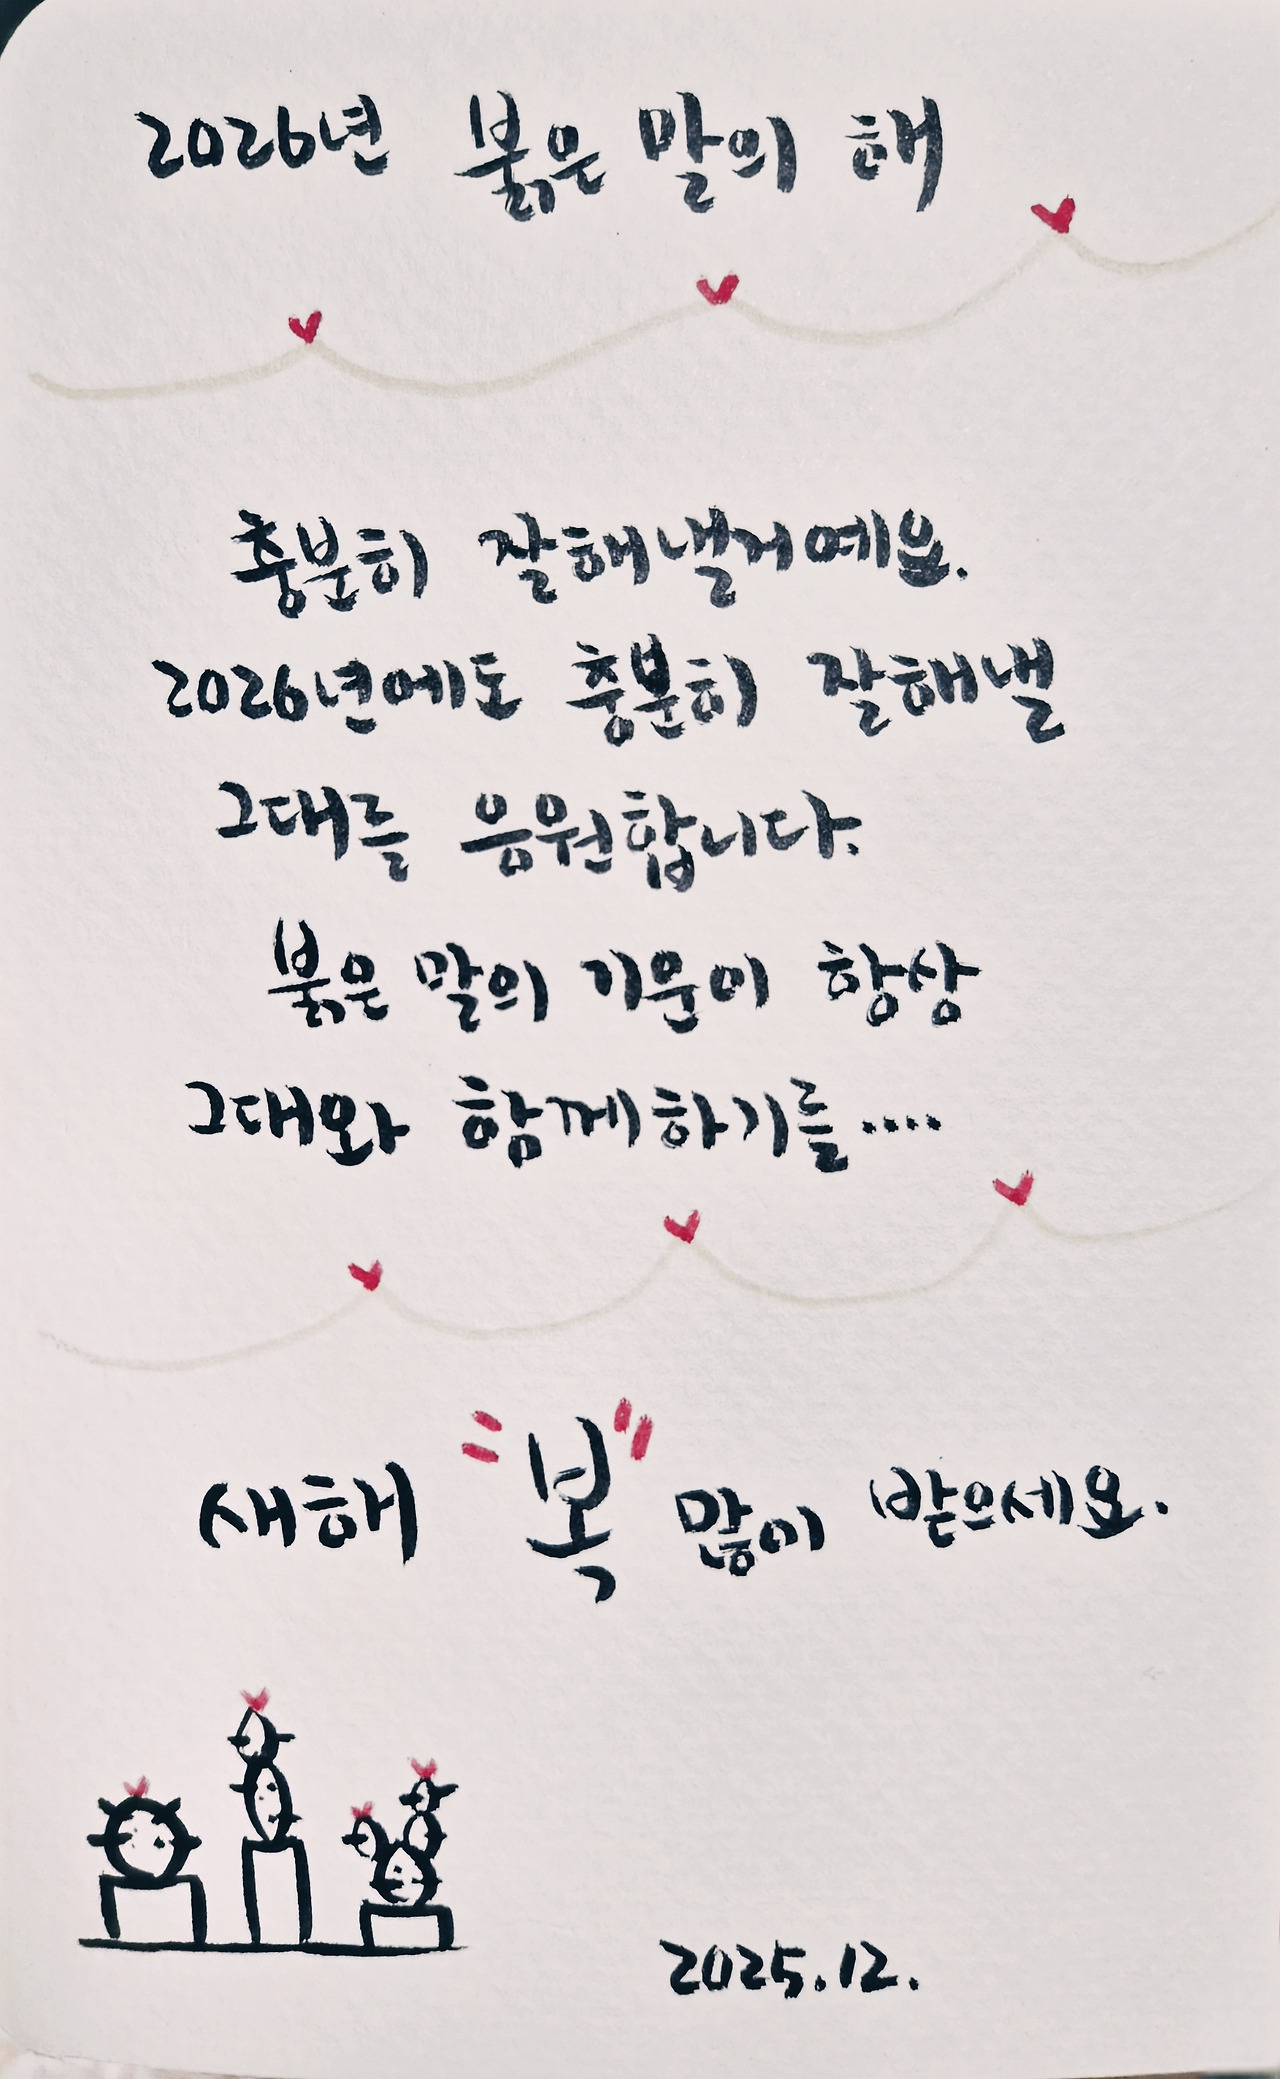 2026년 붉은 말의 해
충분히 잘해낼거예요.
2026년에도 충분히 잘해낼
그대를 응원합니다.
붉은 말의 기운이 항상
그대와 함께하기를....
새해 "복" 많이 받으세요.
2025.12.